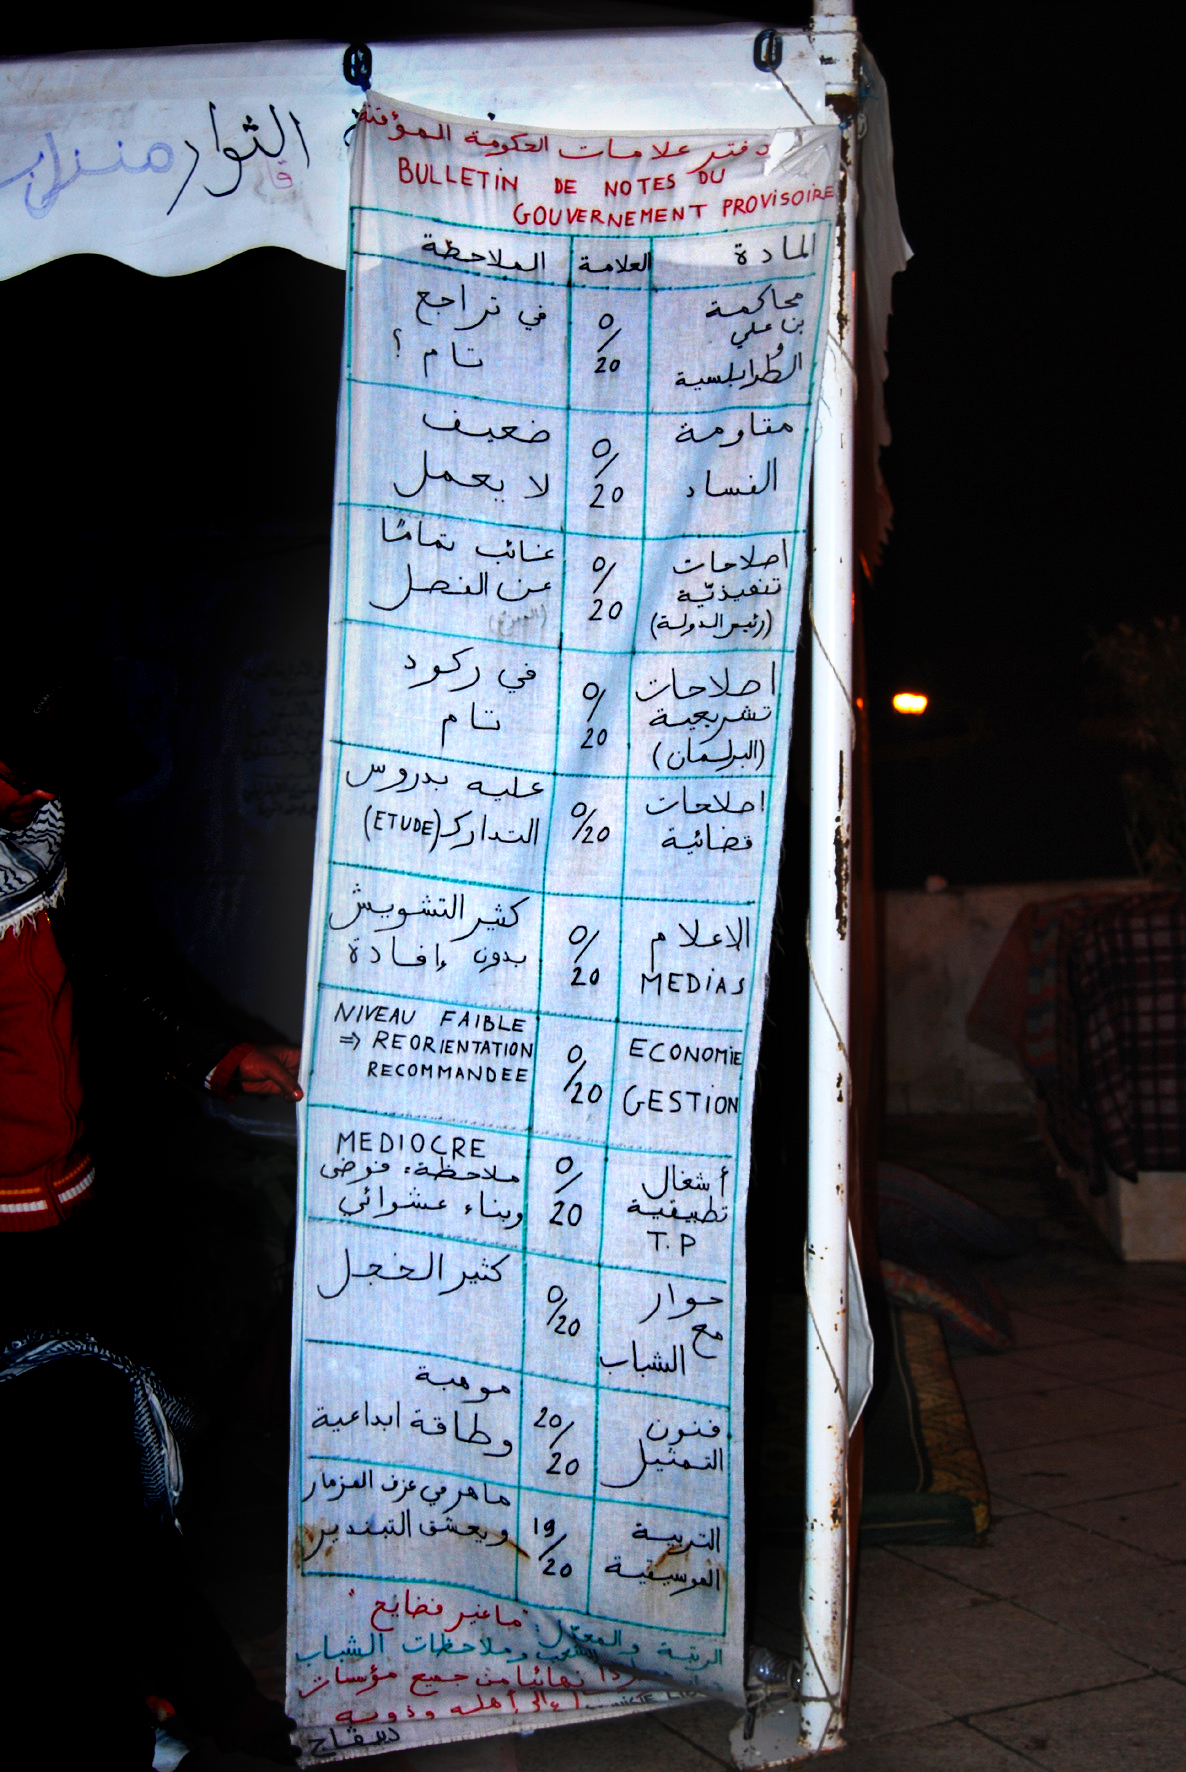 الثوار منزل
دفتر علامات الحكومة المؤقتة
BULLETIN DE NOTES DU
GOUVERNEMENT PROVISOIRE
المادة العلامة الملاحظة
محاكمة
بن علي
و
الطرابلسية
0/20
في تراجع
تام ؟
مقاومة
الفساد
0/20
ضعيف
لا يعمل
اصلاحات
تنفيذيّة
(رئيس الدولة)
0/20
غائب تمامًا
عن الفصل
اصلاحات
تشريعية
(البرلمان)
0/20
في ركود
تام
اصلاحات
قضائية
0/20
عليه بدروس
التدارك (ETUDE)
الاعلام
MEDIAS
0/20
كثير التشويش
بدون إفادة
ECONOMIE
GESTION
0/20
NIVEAU FAIBLE
⇒ REORIENTATION
RECOMMANDEE
أشغال
تطبيقية
T.P
0/20
MEDIOCRE
ملاحظة: فوضى
وبناء عشوائي
حوار
مع
الشباب
0/20
كثير الخجل
فنون
التمثيل
20/20
موهبة
وطاقة ابداعية
التربية
الموسيقية
19/20
ماهر في عزف المزمار
ويعشق التبندير
"ماغير فضايح"
الرتبة والمعدّل:
الشعب وملاحظات الشباب
نهائيا من جميع مؤسسات
إلى أهله وذويه